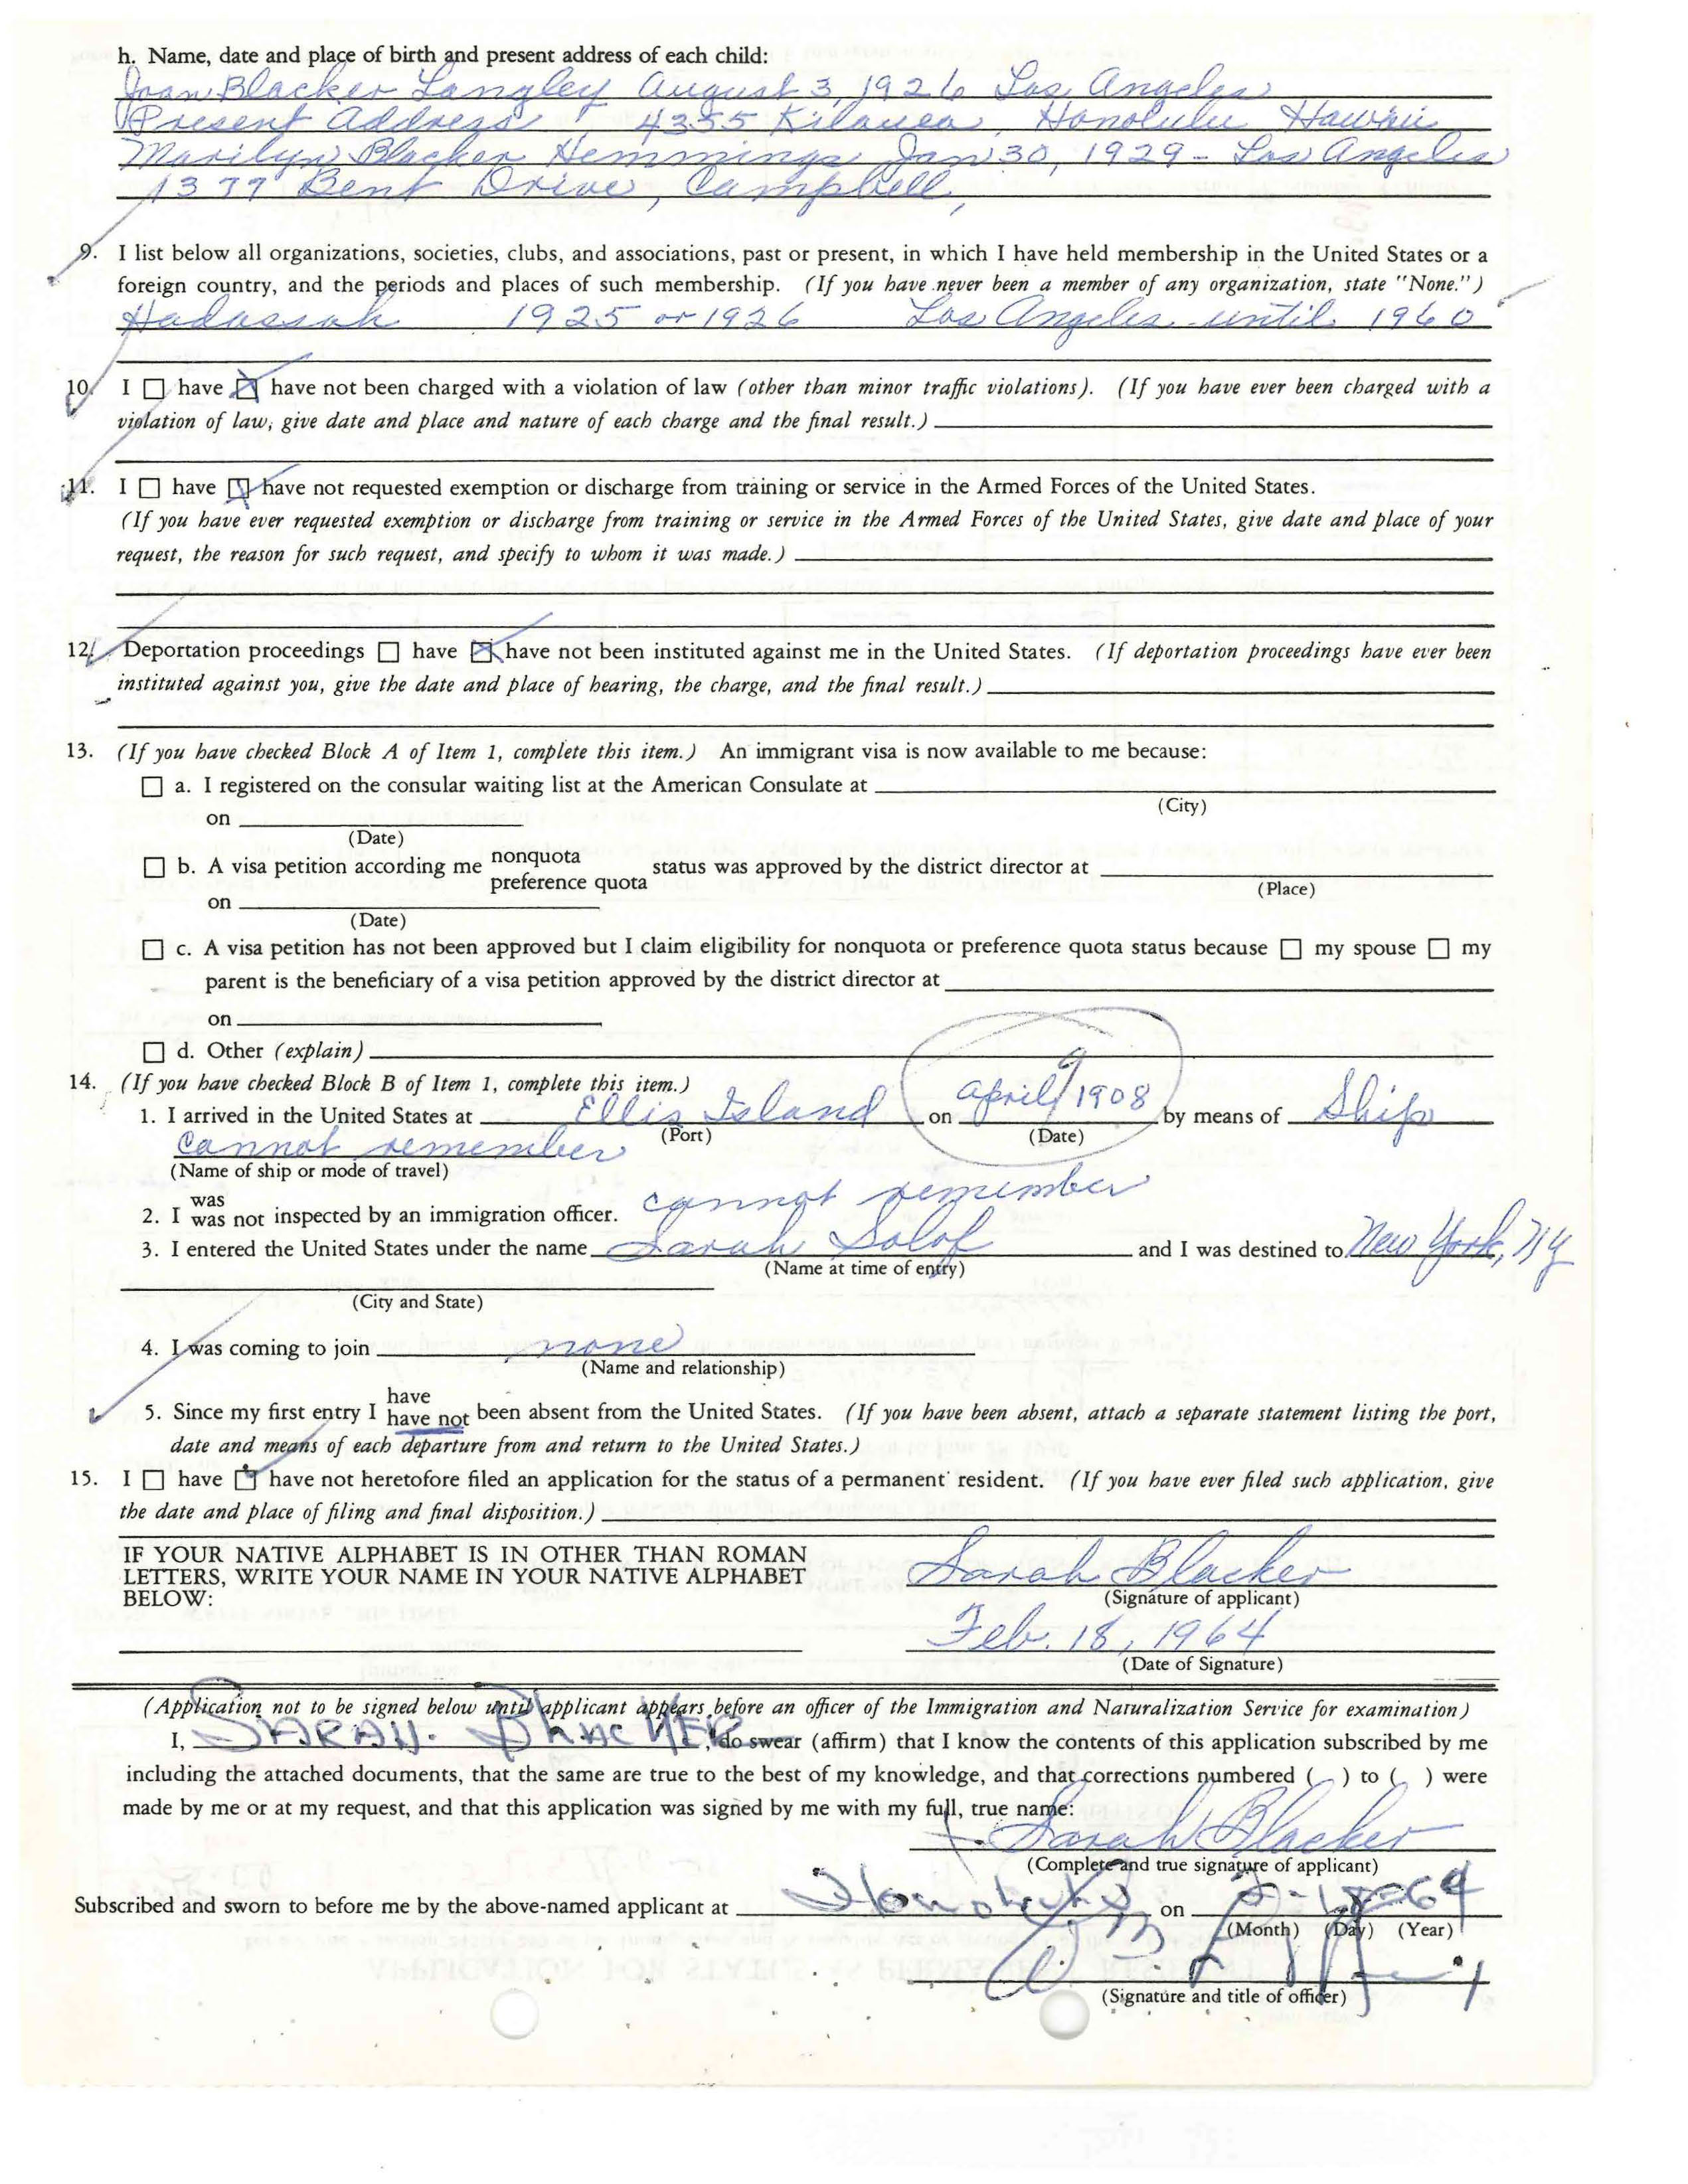 h. Name, date and place of birth and present address of each child:
Joan Blacker Langley August 3, 1926 Los Angeles
Present Address 4355 Kilauea, Honolulu Hawaii
Marilyn Blacker Hemmings Jan 30, 1929 - Los Angeles
1377 Bent Drive, Campbell,
9. I list below all organizations, societies, clubs, and associations, past or present, in which I have held membership in the United States or a
foreign country, and the periods and places of such membership. (If you have never been a member of any organization, state "None.")
Hadassah 1925 or 1926 Los Angeles until 1960
10. I ☐ have ☒ have not been charged with a violation of law (other than minor traffic violations). (If you have ever been charged with a
violation of law, give date and place and nature of each charge and the final result.)
11. I ☐ have ☒ have not requested exemption or discharge from training or service in the Armed Forces of the United States.
(If you have ever requested exemption or discharge from training or service in the Armed Forces of the United States, give date and place of your
request, the reason for such request, and specify to whom it was made.)
12. Deportation proceedings ☐ have ☒ have not been instituted against me in the United States. (If deportation proceedings have ever been
instituted against you, give the date and place of hearing, the charge, and the final result.)
13. (If you have checked Block A of Item 1, complete this item.) An immigrant visa is now available to me because:
☐ a. I registered on the consular waiting list at the American Consulate at
(City)
on
(Date)
☐ b. A visa petition according me nonquota preference quota status was approved by the district director at
(Place)
on
(Date)
☐ c. A visa petition has not been approved but I claim eligibility for nonquota or preference quota status because ☐ my spouse ☐ my
parent is the beneficiary of a visa petition approved by the district director at
on
☐ d. Other (explain)
14. (If you have checked Block B of Item 1, complete this item.)
1. I arrived in the United States at Ellis Island on April 9 1908 by means of Ship
(Port) (Date)
cannot remember
(Name of ship or mode of travel)
2. I was was not inspected by an immigration officer. cannot remember
3. I entered the United States under the name Sarah Solof and I was destined to New York, NY
(Name at time of entry)
(City and State)
4. I was coming to join none
(Name and relationship)
5. Since my first entry I have have not been absent from the United States. (If you have been absent, attach a separate statement listing the port,
date and means of each departure from and return to the United States.)
15. I ☐ have ☒ have not heretofore filed an application for the status of a permanent resident. (If you have ever filed such application, give
the date and place of filing and final disposition.)
IF YOUR NATIVE ALPHABET IS IN OTHER THAN ROMAN
LETTERS, WRITE YOUR NAME IN YOUR NATIVE ALPHABET
BELOW:
Sarah Blacker
(Signature of applicant)
Feb. 18, 1964
(Date of Signature)
(Application not to be signed below until applicant appears before an officer of the Immigration and Naturalization Service for examination)
I, SARAH BLACKER, do swear (affirm) that I know the contents of this application subscribed by me
including the attached documents, that the same are true to the best of my knowledge, and that corrections numbered ( ) to ( ) were
made by me or at my request, and that this application was signed by me with my full, true name:
Sarah Blacker
(Complete and true signature of applicant)
Subscribed and sworn to before me by the above-named applicant at Honolulu on 2-18-64
(Month) (Day) (Year)
(Signature and title of officer)